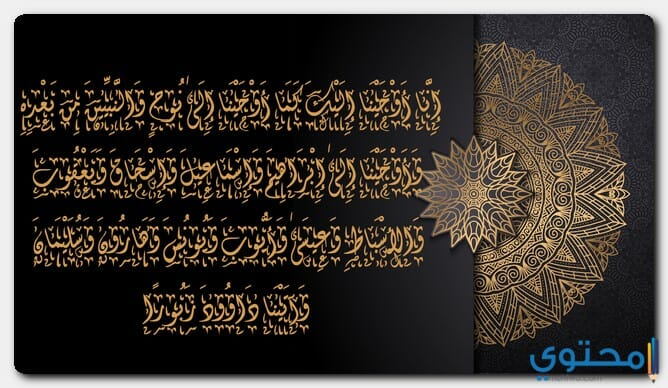 إِنَّا أَوْحَيْنَا إِلَيْكَ كَمَا أَوْحَيْنَا إِلَىٰ نُوحٍ وَالنَّبِيِّينَ مِن بَعْدِهِ
وَأَوْحَيْنَا إِلَىٰ إِبْرَاهِيمَ وَإِسْمَاعِيلَ وَإِسْحَاقَ وَيَعْقُوبَ
وَالْأَسْبَاطِ وَعِيسَىٰ وَأَيُّوبَ وَيُونُسَ وَهَارُونَ وَسُلَيْمَانَ
وَآتَيْنَا دَاوُودَ زَبُورًا
محتوي